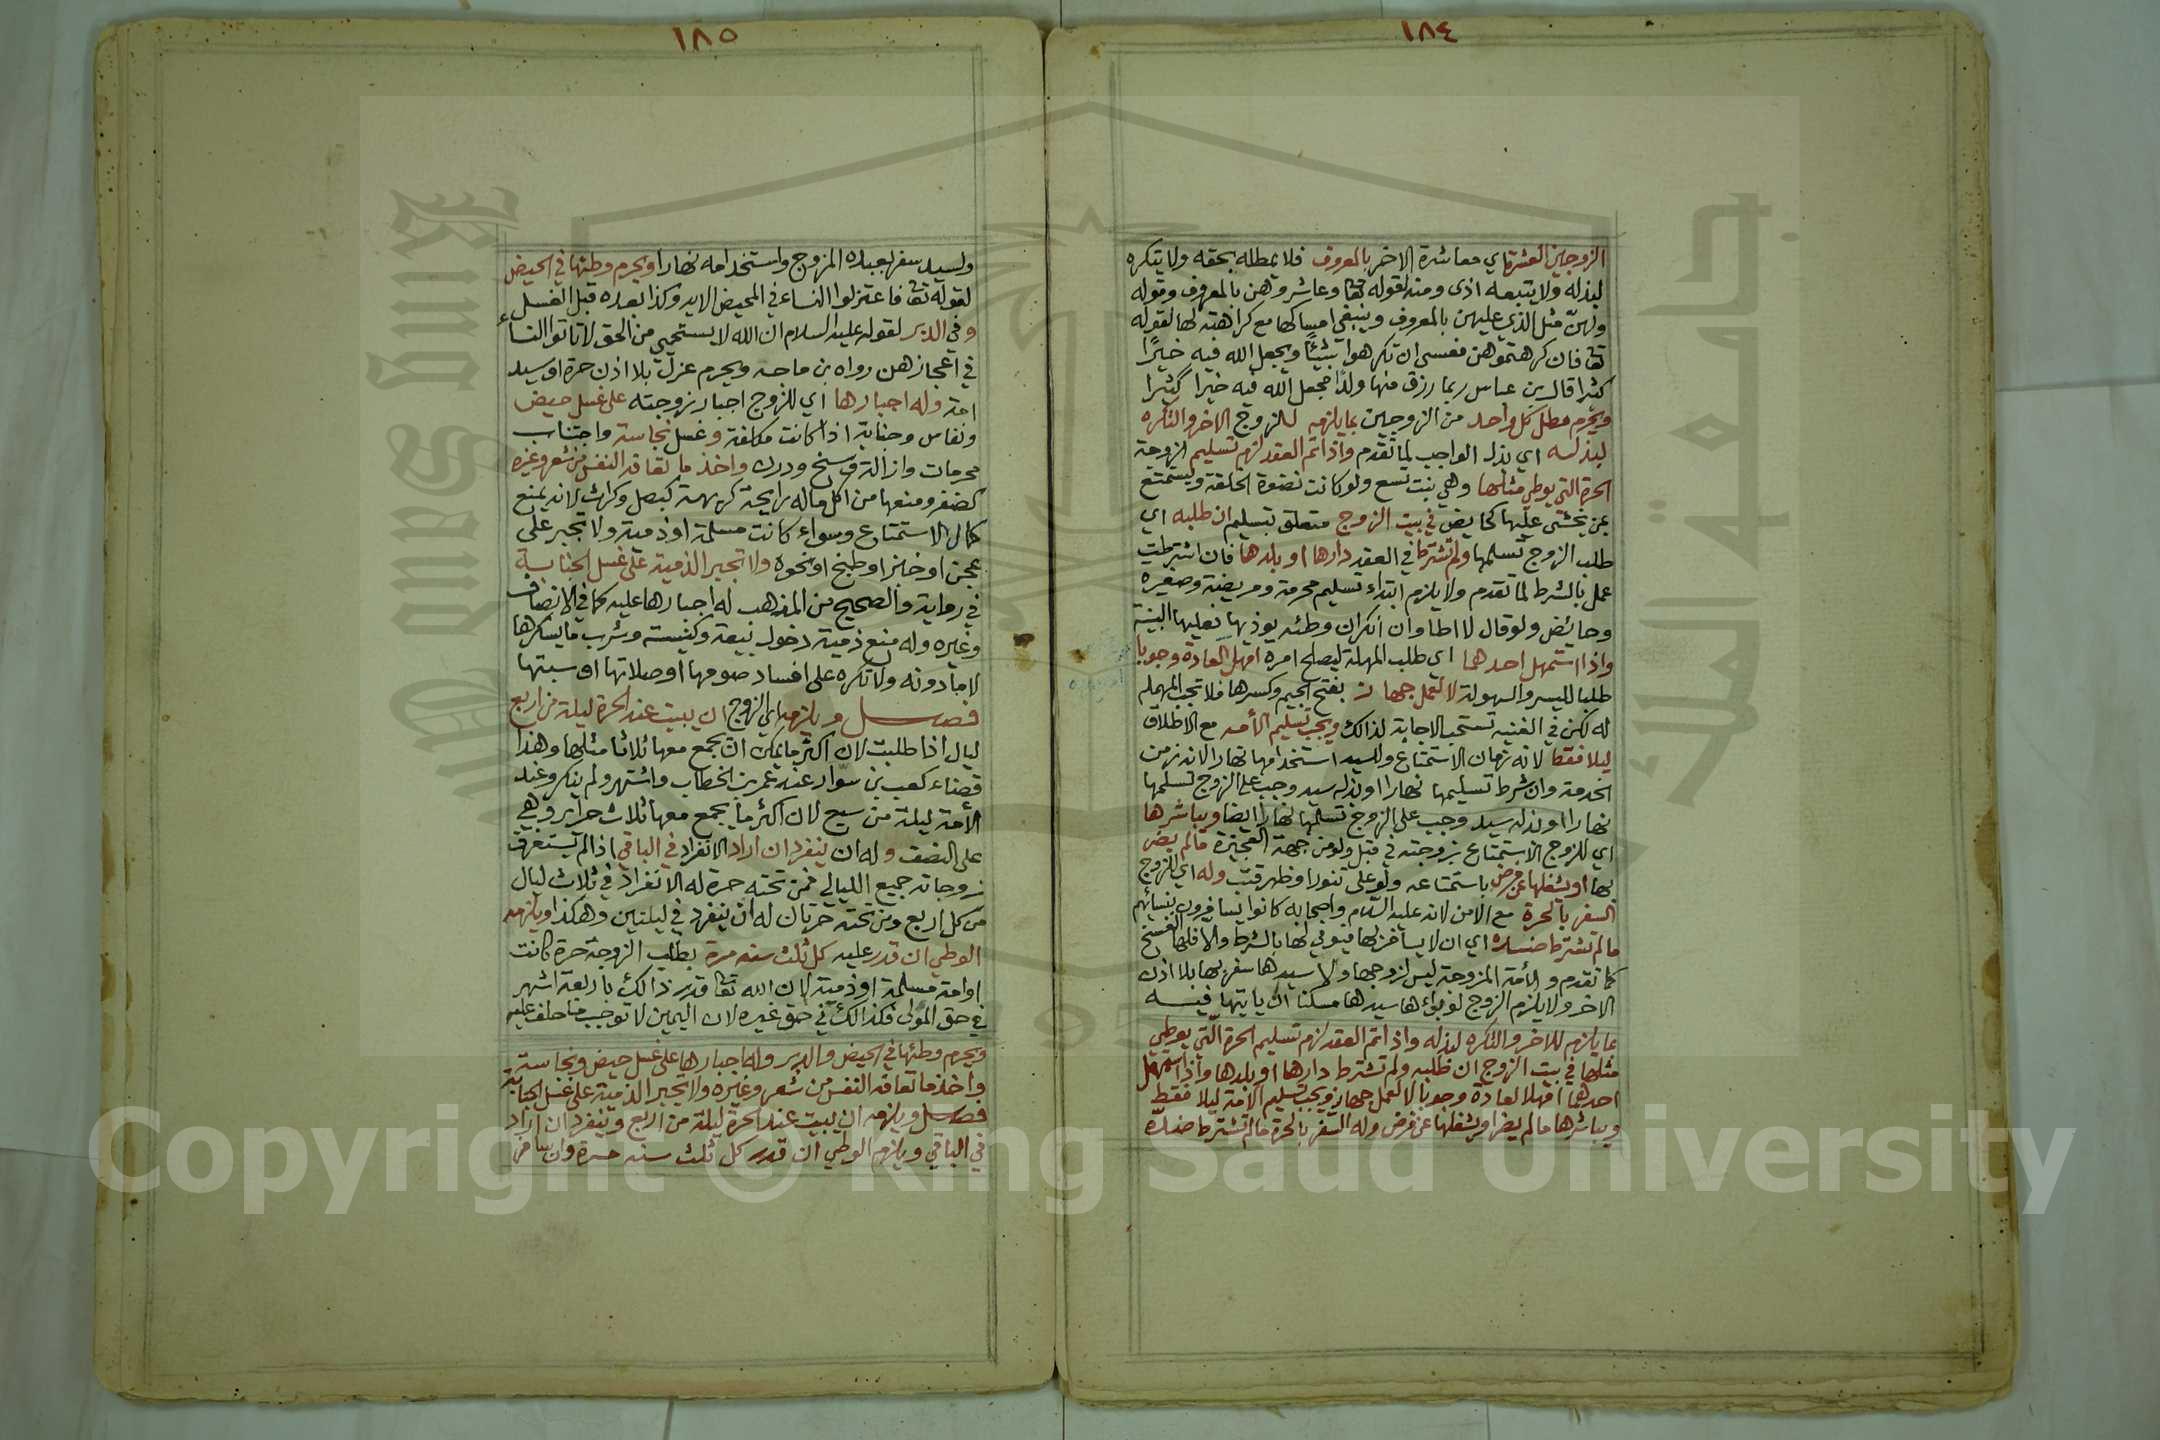 ١٨٤
الزوجين العشرة اي معاشرة الاخر بالمعروف فلا يمطله بحقه ولا يتكره
لبذله ولا يتبعه اذى ومنه لقوله تعا وعاشروهن بالمعروف وقوله
ولهن مثل الذي عليهن بالمعروف وينبغي امساكها مع كراهته لها لقوله
تعا فان كرهتموهن فعسى ان تكرهوا شيئًا ويجعل الله فيه خيرًا
كثيرا قال بن عباس ربما رزق منها ولدًا فجعل الله فيه خيرا كثيرا
ويحرم مطل كل واحد من الزوجين بما يلزمه للزوج الاخر والتكره
لبذله اي بذل الواجب لما تقدم واذا تم العقد لزم تسليم الزوجة
الحرة التي يوطي مثلها وهي بنت تسع ولو كانت نضوة الخلقة ويستمتع
بمن يخشى عليها كحايض في بيت الزوج متعلق بتسليم ان طلبه اي
طلب الزوج تسلمها ولم تشترط في العقد دارها او بلدها فان اشترطت
عمل بالشرط لما تقدم ولا يلزم ابتداء تسليم محرمة ومريضة وصغيرة
وحائض ولو قال لا اطا وان انكر ان وطئه يوذيها فعليها البينة
واذا استمهل احدهما اي طلب المهلة ليصلح امره امهل العادة وجوبا
طلبا لليسر والسهولة لا لعمل جهاز بفتح الجيم وكسرها فلا تجب المهملة
له لكن في الغنيه تستحب الاجابة لذالك ويجب تسليم الأمه مع الاطلاق
ليلا فقط لانه زمان الاستمتاع وللسيد استخدامها نهارا لانه زمن
الخدمة وان شرط تسليمها نهارا او بذله سيد وجب على الزوج تسلمها
نهارا او بذله سيد وجب على الزوج تسلمها نهارا ايضا ويباشرها
اي للزوج الاستمتاع بزوجته في قبل ولو من جهة العجيزة مالم يضر
بها او يشغلها عن فرض باستمتاعه ولو على تنور او ظهر قتب وله اي للزوج
السفر بالحرة مع الامن لانه عليه السلام واصحابه كانوا يسافرون بنسائهم
مالم تشترط ضده اي ان لا يسافر بها فيوفي لها بالشرط والا فلها الفسخ
كما تقدم والأمة المزوجة ليس لزوجها ولا سيدها سفر بها بلا اذن
الاخر ولا يلزم الزوج لو بواءها سيدها مسكنا ان ياتيها فيه
بما يلزم للاخر والتكره لبذله واذا تم العقد لزم تسليم الحرة التي يوطي
مثلها في بيت الزوج ان طلبه ولم تشترط دارها او بلدها واذا استمهل
احدهما امهل العادة وجوبا لا لعمل جهاز ويجب تسليم الامة ليلا فقط
ويباشرها مالم يضر او يشغلها عن فرض وله السفر بالحرة مالم تشترط ضده
١٨٥
ولسيد سفر بعبده المزوج واستخدامه نهارا ويحرم وطئها في الحيض
لقوله تعا فاعتزلوا النساء في المحيض الايه وكذا بعده قبل الغسل
وفي الدبر لقوله عليه السلام ان الله لا يستحيي من الحق لا تاتوا النساء
في اعجازهن رواه بن ماجه ويحرم عزل بلا اذن حرة او سيد
امة وله اجبارها اي للزوج اجبار زوجته على غسل حيض
ونفاس وجنابة اذا كانت مكلفة وغسل نجاسة واجتناب
محرمات وازالة وسخ ودرن واخذ ما تعافه النفس من شعر وغيره
كضفر ومنعها من اكل ماله رايحة كريهة كبصل وكراث لانه يمنع
كمال الاستمتاع وسواء كانت مسلمة او ذمية ولا تجبر على
عجن او خبز او طبخ او نحوه ولا تجبر الذمية على غسل الجنابة
في رواية والصحيح من المذهب له اجبارها عليه كما في الانصاف
وغيره وله منع ذمية دخول بيعة وكنيسة وشرب ما يسكرها
لا ما دونه ولا تكره على افساد صومها او صلاتها او سبتها
فصل ويلزمه اي الزوج ان يبيت عند الحرة ليلة من اربع
ليال اذا طلبت لان اكثر ما يمكن ان يجمع معها ثلاثا مثلها وهذا
قضاء كعب بن سوار عند عمر بن الخطاب واشتهر ولم ينكر وعند
الأمة ليلة من سبع لان اكثر ما يجمع معها ثلاث حراير وهي
على النصف وله ان ينفرد ان اراد الانفراد في الباقي اذا لم يستغرق
زوجاته جميع الليالي فمن تحته حرة له الانفراد في ثلاث ليال
من كل اربع ومن تحته حرتان له ان ينفرد في ليلتين وهكذا ويلزمه
الوطي ان قدر عليه كل ثلث سنه مرة بطلب الزوجة حرة كانت
او امة مسلمة او ذمية لان الله تعا قدر ذالك باربعة اشهر
في حق المولى فكذالك في حق غيره لان اليمين لا توجب ما حلف عليه
ويحرم وطئها في الحيض والدبر وله اجبارها على غسل حيض ونجاسة
واخذ ما تعافه النفس من شعر وغيره ولا تجبر الذمية على غسل الجنابة
فصل ويلزمه ان يبيت عند الحرة ليلة من اربع وينفرد ان اراد
في الباقي ويلزم الوطي ان قدر كل ثلث سنه مرة وان سافر
Copyright © King Saud University